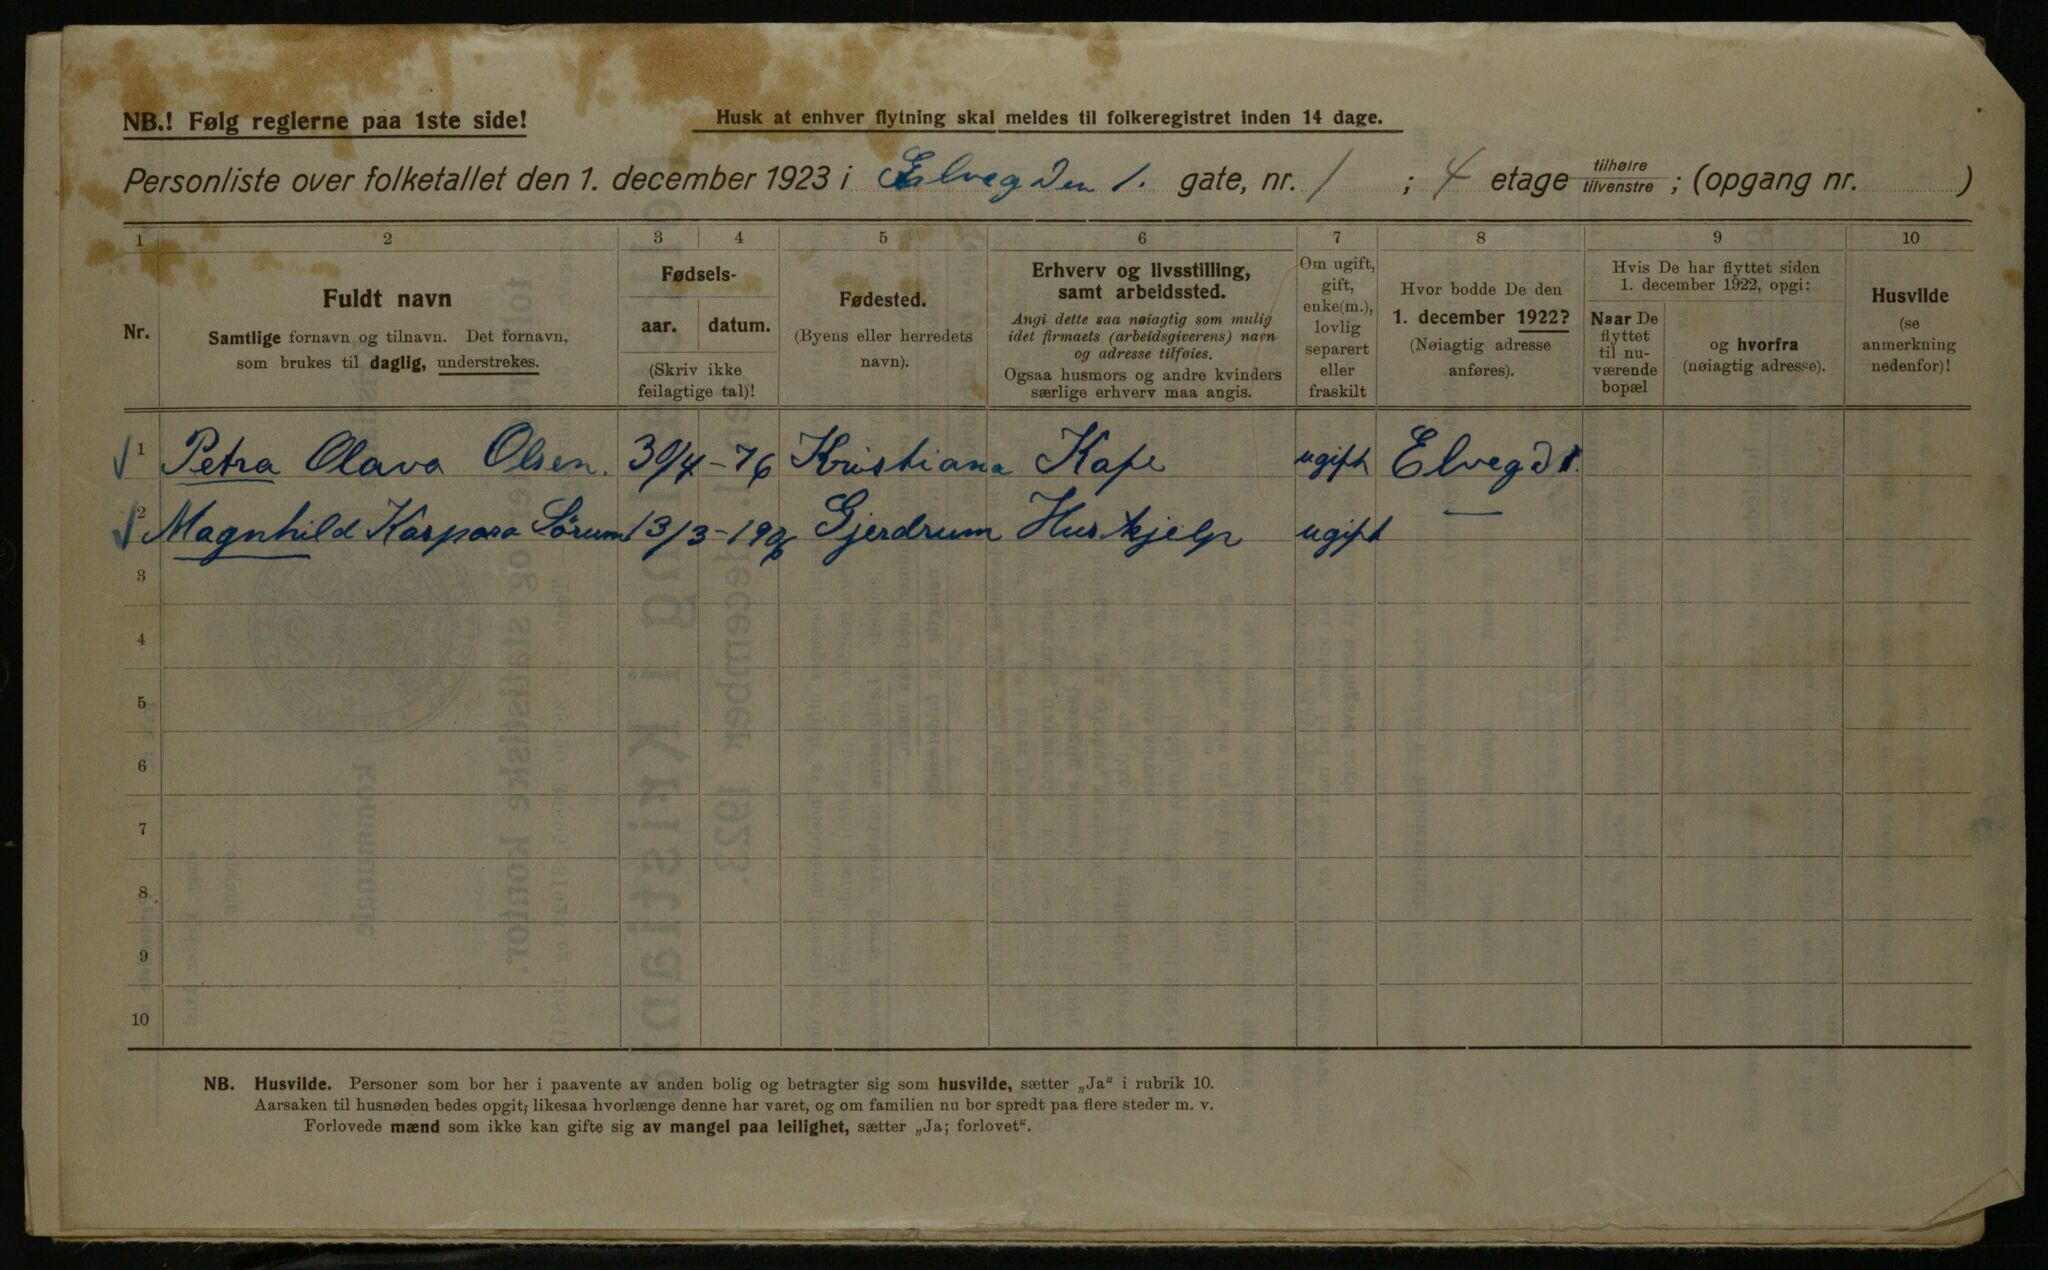 NB.! Følg reglerne paa 1ste side!
Husk at enhver flytning skal meldes til folkeregistret inden 14 dage.
Personliste over folketallet den 1. december 1923 i Elvegden 1. gate, nr. 1 ; 4 etage tilhøire tilvenstre ; (opgang nr. )
1 2 3 4 5 6 7 8 9 10
Nr.
Fuldt navn
Samtlige fornavn og tilnavn. Det fornavn,
som brukes til daglig, understrekes.
Fødsels-
aar. datum.
(Skriv ikke
feilagtige tal)!
Fødested.
(Byens eller herredets
navn).
Erhverv og livsstilling,
samt arbeidssted.
Angi dette saa nøiagtig som mulig
idet firmaets (arbeidsgiverens) navn
og adresse tilføies.
Ogsaa husmors og andre kvinders
særlige erhverv maa angis.
Om ugift,
gift,
enke(m.),
lovlig
separert
eller
fraskilt
Hvor bodde De den
1. december 1922?
(Nøiagtig adresse
anføres).
Hvis De har flyttet siden
1. december 1922, opgi:
Naar De
flyttet
til nu-
værende
bopæl
og hvorfra
(nøiagtig adresse).
Husvilde
(se
anmerkning
nedenfor)!
1 Petra Olava Olsen. 30/4-76 Kristiana Kafe ugift Elvegd 1.
2 Magnhild Kaspara Sörum 13/3- Gjerdrum Huskjelp ugift —
3
4
5
6
7
8
9
10
NB. Husvilde. Personer som bor her i paavente av anden bolig og betragter sig som husvilde, sætter „Ja“ i rubrik 10.
Aarsaken til husnøden bedes opgit; likesaa hvorlænge denne har varet, og om familien nu bor spredt paa flere steder m. v.
Forlovede mænd som ikke kan gifte sig av mangel paa leilighet, sætter „Ja; forlovet“.